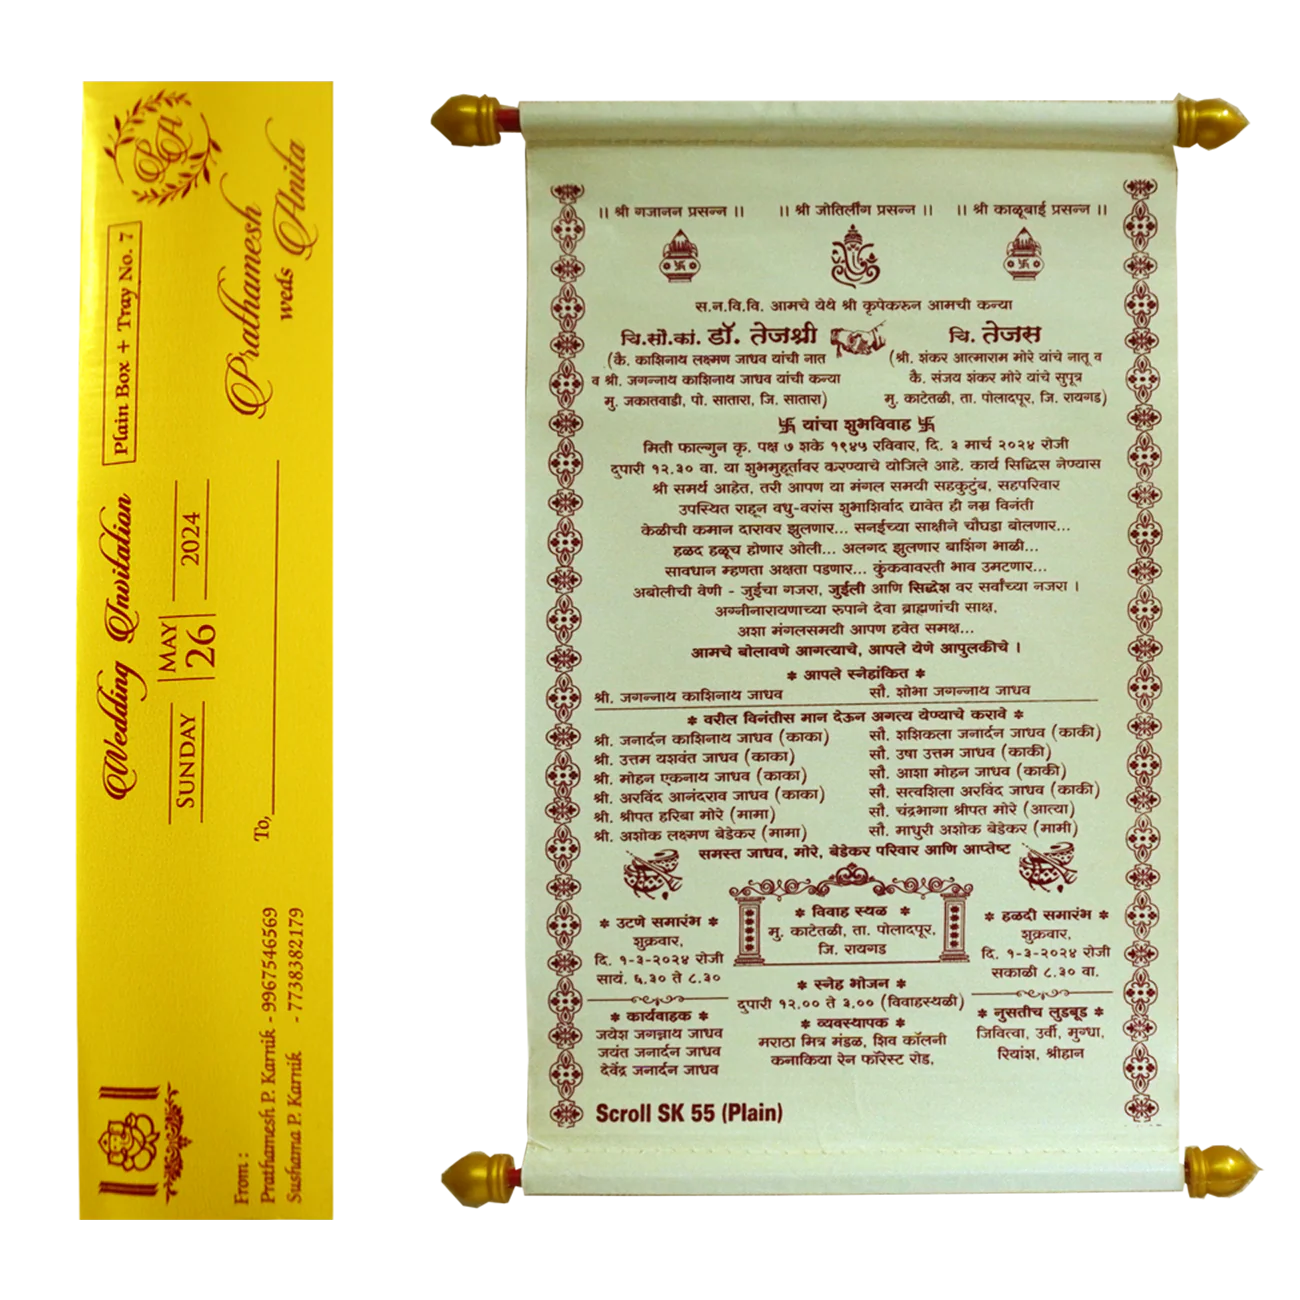 Plain Box + Tray No. 7
Prathamesh
weds Anita
Wedding Invitation
SUNDAY
MAY
26
2024
To,
From :
Prathamesh P. Karnik - 9967546569
Sushama P. Karnik - 7738382179
।। श्री गजानन प्रसन्न ।। ।। श्री जोतिर्लींग प्रसन्न ।। ।। श्री काळूबाई प्रसन्न ।।
स.न.वि.वि. आमचे येथे श्री कृपेकरुन आमची कन्या
चि.सौ.कां. डॉ. तेजश्री चि. तेजस
(कै. काशिनाथ लक्ष्मण जाधव यांची नात (श्री. शंकर आत्माराम मोरे यांचे नातू व
व श्री. जगन्नाथ काशिनाथ जाधव यांची कन्या कै. संजय शंकर मोरे यांचे सुपूत्र
मु. जकातवाडी, पो. सातारा, जि. सातारा) मु. काटेतळी, ता. पोलादपूर, जि. रायगड)
卐 यांचा शुभविवाह 卐
मिती फाल्गुन कृ. पक्ष ७ शके १९४५ रविवार, दि. ३ मार्च २०२४ रोजी
दुपारी १२.३० वा. या शुभमुहूर्तावर करण्याचे योजिले आहे. कार्य सिद्धिस नेण्यास
श्री समर्थ आहेत, तरी आपण या मंगल समयी सहकुटुंब, सहपरिवार
उपस्थित राहून वधु-वरांस शुभाशिर्वाद द्यावेत ही नम्र विनंती
केळीची कमान दारावर झुलणार... सनईच्या साक्षीने चौघडा बोलणार...
हळद हळूच होणार ओली... अलगद झुलणार बाशिंग भाळी...
सावधान म्हणता अक्षता पडणार... कुंकवावरती भाव उमटणार...
अबोलीची वेणी - जुईचा गजरा, जुईली आणि सिद्धेश वर सर्वांच्या नजरा ।
अग्नीनारायणाच्या रुपाने देवा ब्राह्मणांची साक्ष,
अशा मंगलसमयी आपण हवेत समक्ष...
आमचे बोलावणे आगत्याचे, आपले येणे आपुलकीचे ।
* आपले स्नेहांकित *
श्री. जगन्नाथ काशिनाथ जाधव सौ. शोभा जगन्नाथ जाधव
* वरील विनंतीस मान देऊन अगत्य येण्याचे करावे *
श्री. जनार्दन काशिनाथ जाधव (काका) सौ. शशिकला जनार्दन जाधव (काकी)
श्री. उत्तम यशवंत जाधव (काका) सौ. उषा उत्तम जाधव (काकी)
श्री. मोहन एकनाथ जाधव (काका) सौ. आशा मोहन जाधव (काकी)
श्री. अरविंद आनंदराव जाधव (काका) सौ. सत्वशिला अरविंद जाधव (काकी)
श्री. श्रीपत हरिबा मोरे (मामा) सौ. चंद्रभागा श्रीपत मोरे (आत्या)
श्री. अशोक लक्ष्मण बेडेकर (मामा) सौ. माधुरी अशोक बेडेकर (मामी)
समस्त जाधव, मोरे, बेडेकर परिवार आणि आप्तेष्ट
* उटणे समारंभ *
शुक्रवार,
दि. १-३-२०२४ रोजी
सायं. ६.३० ते ८.३०
* विवाह स्थळ *
मु. काटेतळी, ता. पोलादपूर,
जि. रायगड
* हळदी समारंभ *
शुक्रवार,
दि. १-३-२०२४ रोजी
सकाळी ८.३० वा.
* कार्यवाहक *
जयेश जगन्नाथ जाधव
जयंत जनार्दन जाधव
देवेंद्र जनार्दन जाधव
* स्नेह भोजन *
दुपारी १२.०० ते ३.०० (विवाहस्थळी)
* व्यवस्थापक *
मराठा मित्र मंडळ, शिव कॉलनी
कनाकिया रेन फॉरेस्ट रोड,
* नुसतीच लुडबूड *
जिवित्वा, उर्वी, मुग्धा,
रियांश, श्रीहान
Scroll SK 55 (Plain)